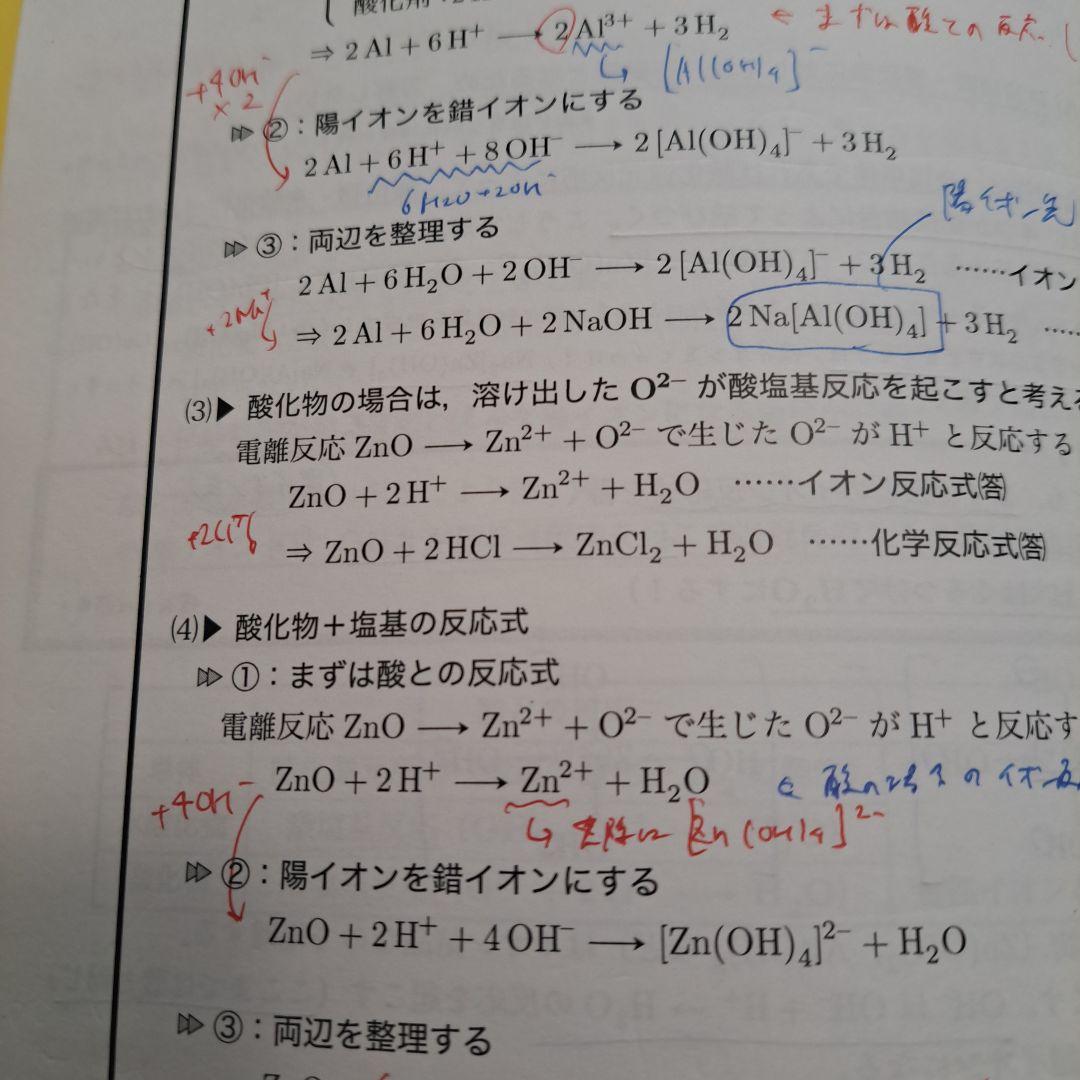 ⇒ 2 Al + 6 H⁺ ⟶ 2 Al³⁺ + 3 H₂ ← まずは酸との反応
+4OH⁻ [Al(OH)₄]⁻
× 2
▷▷ ②：陽イオンを錯イオンにする
2 Al + 6 H⁺ + 8 OH⁻ ⟶ 2 [Al(OH)₄]⁻ + 3 H₂
6H₂O+2OH⁻
▷▷ ③：両辺を整理する
2 Al + 6 H₂O + 2 OH⁻ ⟶ 2 [Al(OH)₄]⁻ + 3 H₂ ……イオン
+2Na⁺
⇒ 2 Al + 6 H₂O + 2 NaOH ⟶ 2 Na[Al(OH)₄] + 3 H₂ ……
(3)▶ 酸化物の場合は，溶け出した O²⁻ が酸塩基反応を起こすと考え
電離反応 ZnO ⟶ Zn²⁺ + O²⁻ で生じた O²⁻ が H⁺ と反応する
ZnO + 2 H⁺ ⟶ Zn²⁺ + H₂O ……イオン反応式(答)
+2Cl⁻
⇒ ZnO + 2 HCl ⟶ ZnCl₂ + H₂O ……化学反応式(答)
(4)▶ 酸化物＋塩基の反応式
▷▷ ①：まずは酸との反応式
電離反応 ZnO ⟶ Zn²⁺ + O²⁻ で生じた O²⁻ が H⁺ と反応す
ZnO + 2 H⁺ ⟶ Zn²⁺ + H₂O
+4OH⁻ 実際は [Zn(OH)₄]²⁻
▷▷ ②：陽イオンを錯イオンにする
ZnO + 2 H⁺ + 4 OH⁻ ⟶ [Zn(OH)₄]²⁻ + H₂O
▷▷ ③：両辺を整理する